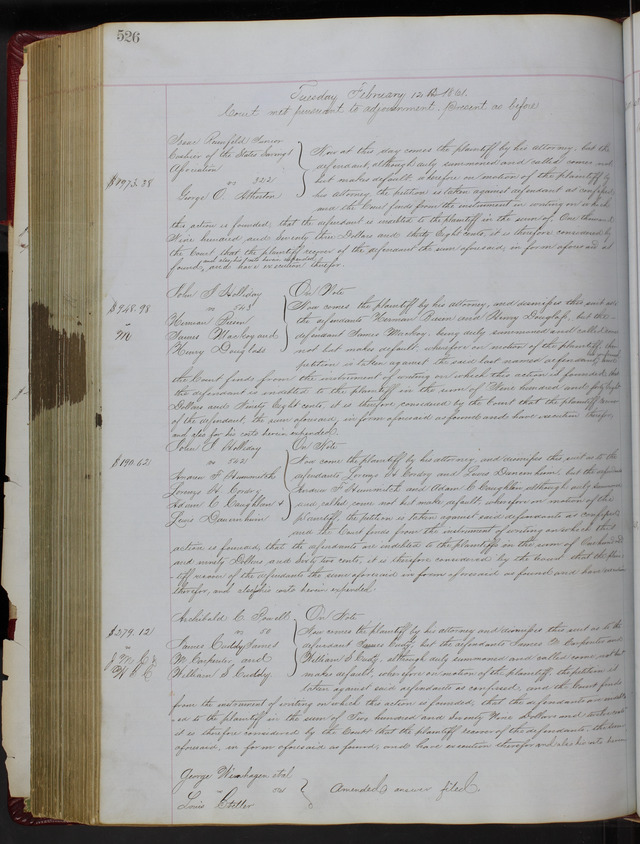 526
Tuesday February 12th 1861.
Court met pursuant to adjournment. Present as before
Isaac Junior
Cashier of the State Savings
Association
vs 322
George O. Atherton
$1973.38
Now at this day comes the plaintiff by his attorney; but the
defendant, although duly summoned and called comes not
but makes default, wherefore on motion of the plaintiff by
his attorney, the petition is taken against defendant as confessed
and the Court finds from the instrument in writing on which
this action is founded; that the defendant is indebted to the plaintiff in the sum of One thousand
Nine hundred and Seventy three Dollars and thirty Eight cents, it is therefore considered by
the Court that the plaintiff recover of the defendant the sum aforesaid, in form aforesaid as
and also his costs herein expended
found, and have execution therefor.
John S Holliday
vs 543
Herman
James Mackay and
Henry Douglass
$948.98
On Note
Now comes the plaintiff by his attorney, and dismisses this suit as to
the defendants Herman and Henry Douglass, but the
defendant James Mackay, being duly summoned and called comes
not but makes default, wherefore on motion of the plaintiff the
petition is taken against the said last named defendant
the Court finds from the instrument of writing on which this action is founded; that
the defendant is indebted to the plaintiff in the sum of Nine hundred and forty Eight
Dollars and Ninety Eight cents, it is therefore, considered by the Court that the plaintiff recover
of the defendant, the sum aforesaid, in form aforesaid as found and have execution therefor,
and also for his costs herein expended
John S Holliday
vs 542
Andrew F Hummitch
Lorenzo H. Cordry
Adam C. Caughlan &
Louis Dannenhum
$190.62
On Note
Now come the plaintiff by his attorney, and dismisses this suit as to the
defendants, Lorenzo H Cordry and Louis Dannenhum, but the defendants
Andrew F Hummitch and Adam C Caughlan although duly summoned
and, called come not but make default; wherefore on motion of the
plaintiff, the petition is taken against said defendants as confessed
and the Court finds from the instrument of writing on which this
action is founded, that the defendants are indebted to the plaintiffs in the sum of One hundred
and ninety Dollars and Sixty two cents, it is therefore considered by the Court that the plain-
tiff recover of the defendants the sum aforesaid in form aforesaid as found and have execution
therefor, and also his costs herein expended.
Archibald C. Powell
vs 50
James Cuddy James
M Carpenter, and
William S Cuddy
$279.12
On Note
Now comes the plaintiff by his attorney and dismisses this suit as to the
defendant James Cuddy, but the defendants James M Carpenter and
William S Cuddy, although duly summoned and called come, not but
makes default; wherefore on motion of the plaintiff, the petition is
taken against said defendants as confessed, and the Court finds
from the instrument of writing on which this action is founded; that the defendants are indebt-
ed to the plaintiff in the sum of Two hundred and Seventy Nine Dollars and twelve cents
it is therefore considered by the Court that the plaintiff recover of the defendants, the sum
aforesaid, in form aforesaid as found; and have execution therefor and also his costs herein
George Wienhagen et al
vs
Louis Stetter
Amended answer filed